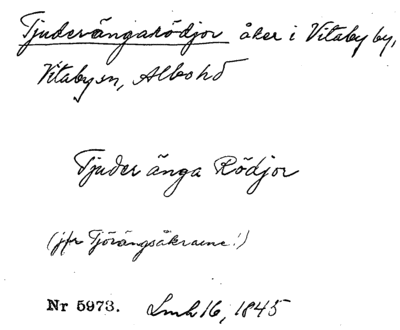 Tjuderängarödjor åker i Vitaby by,
Vitaby sn, Albo hd
Tjuder änga Rödjor
(jfr Tjörängsåkrarne!)
Nr 5973. Lmh 16, 1845